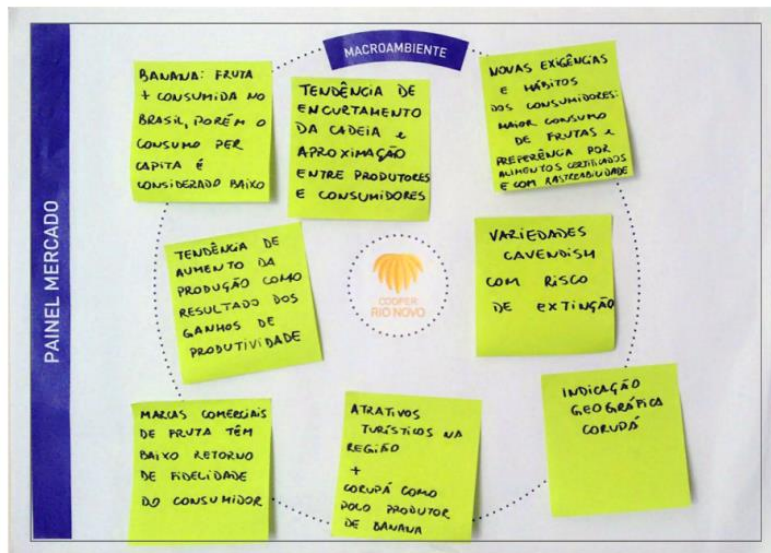 MACROAMBIENTE
PAINEL MERCADO
BANANA: FRUTA
+ CONSUMIDA NO
BRASIL, PORÉM O
CONSUMO PER
CAPITA É
CONSIDERADO BAIXO
TENDÊNCIA DE
ENCURTAMENTO
DA CADEIA e
APROXIMAÇÃO
ENTRE PRODUTORES
E CONSUMIDORES
NOVAS EXIGÊNCIAS
E HÁBITOS
DOS CONSUMIDORES:
MAIOR CONSUMO
DE FRUTAS e
PREFERÊNCIA POR
ALIMENTOS CERTIFICADOS
E COM RASTREABILIDADE
TENDÊNCIA DE
AUMENTO DA
PRODUÇÃO COMO
RESULTADO DOS
GANHOS DE
PRODUTIVIDADE
COOPER
RIO NOVO
VARIEDADES
CAVENDISH
COM RISCO
DE EXTINÇÃO
MARCAS COMERCIAIS
DE FRUTA TÊM
BAIXO RETORNO
DE FIDELIDADE
DO CONSUMIDOR
ATRATIVOS
TURÍSTICOS NA
REGIÃO
+
CORUPÁ COMO
POLO PRODUTOR
DE BANANA
INDICAÇÃO
GEOGRÁFICA
CORUPÁ